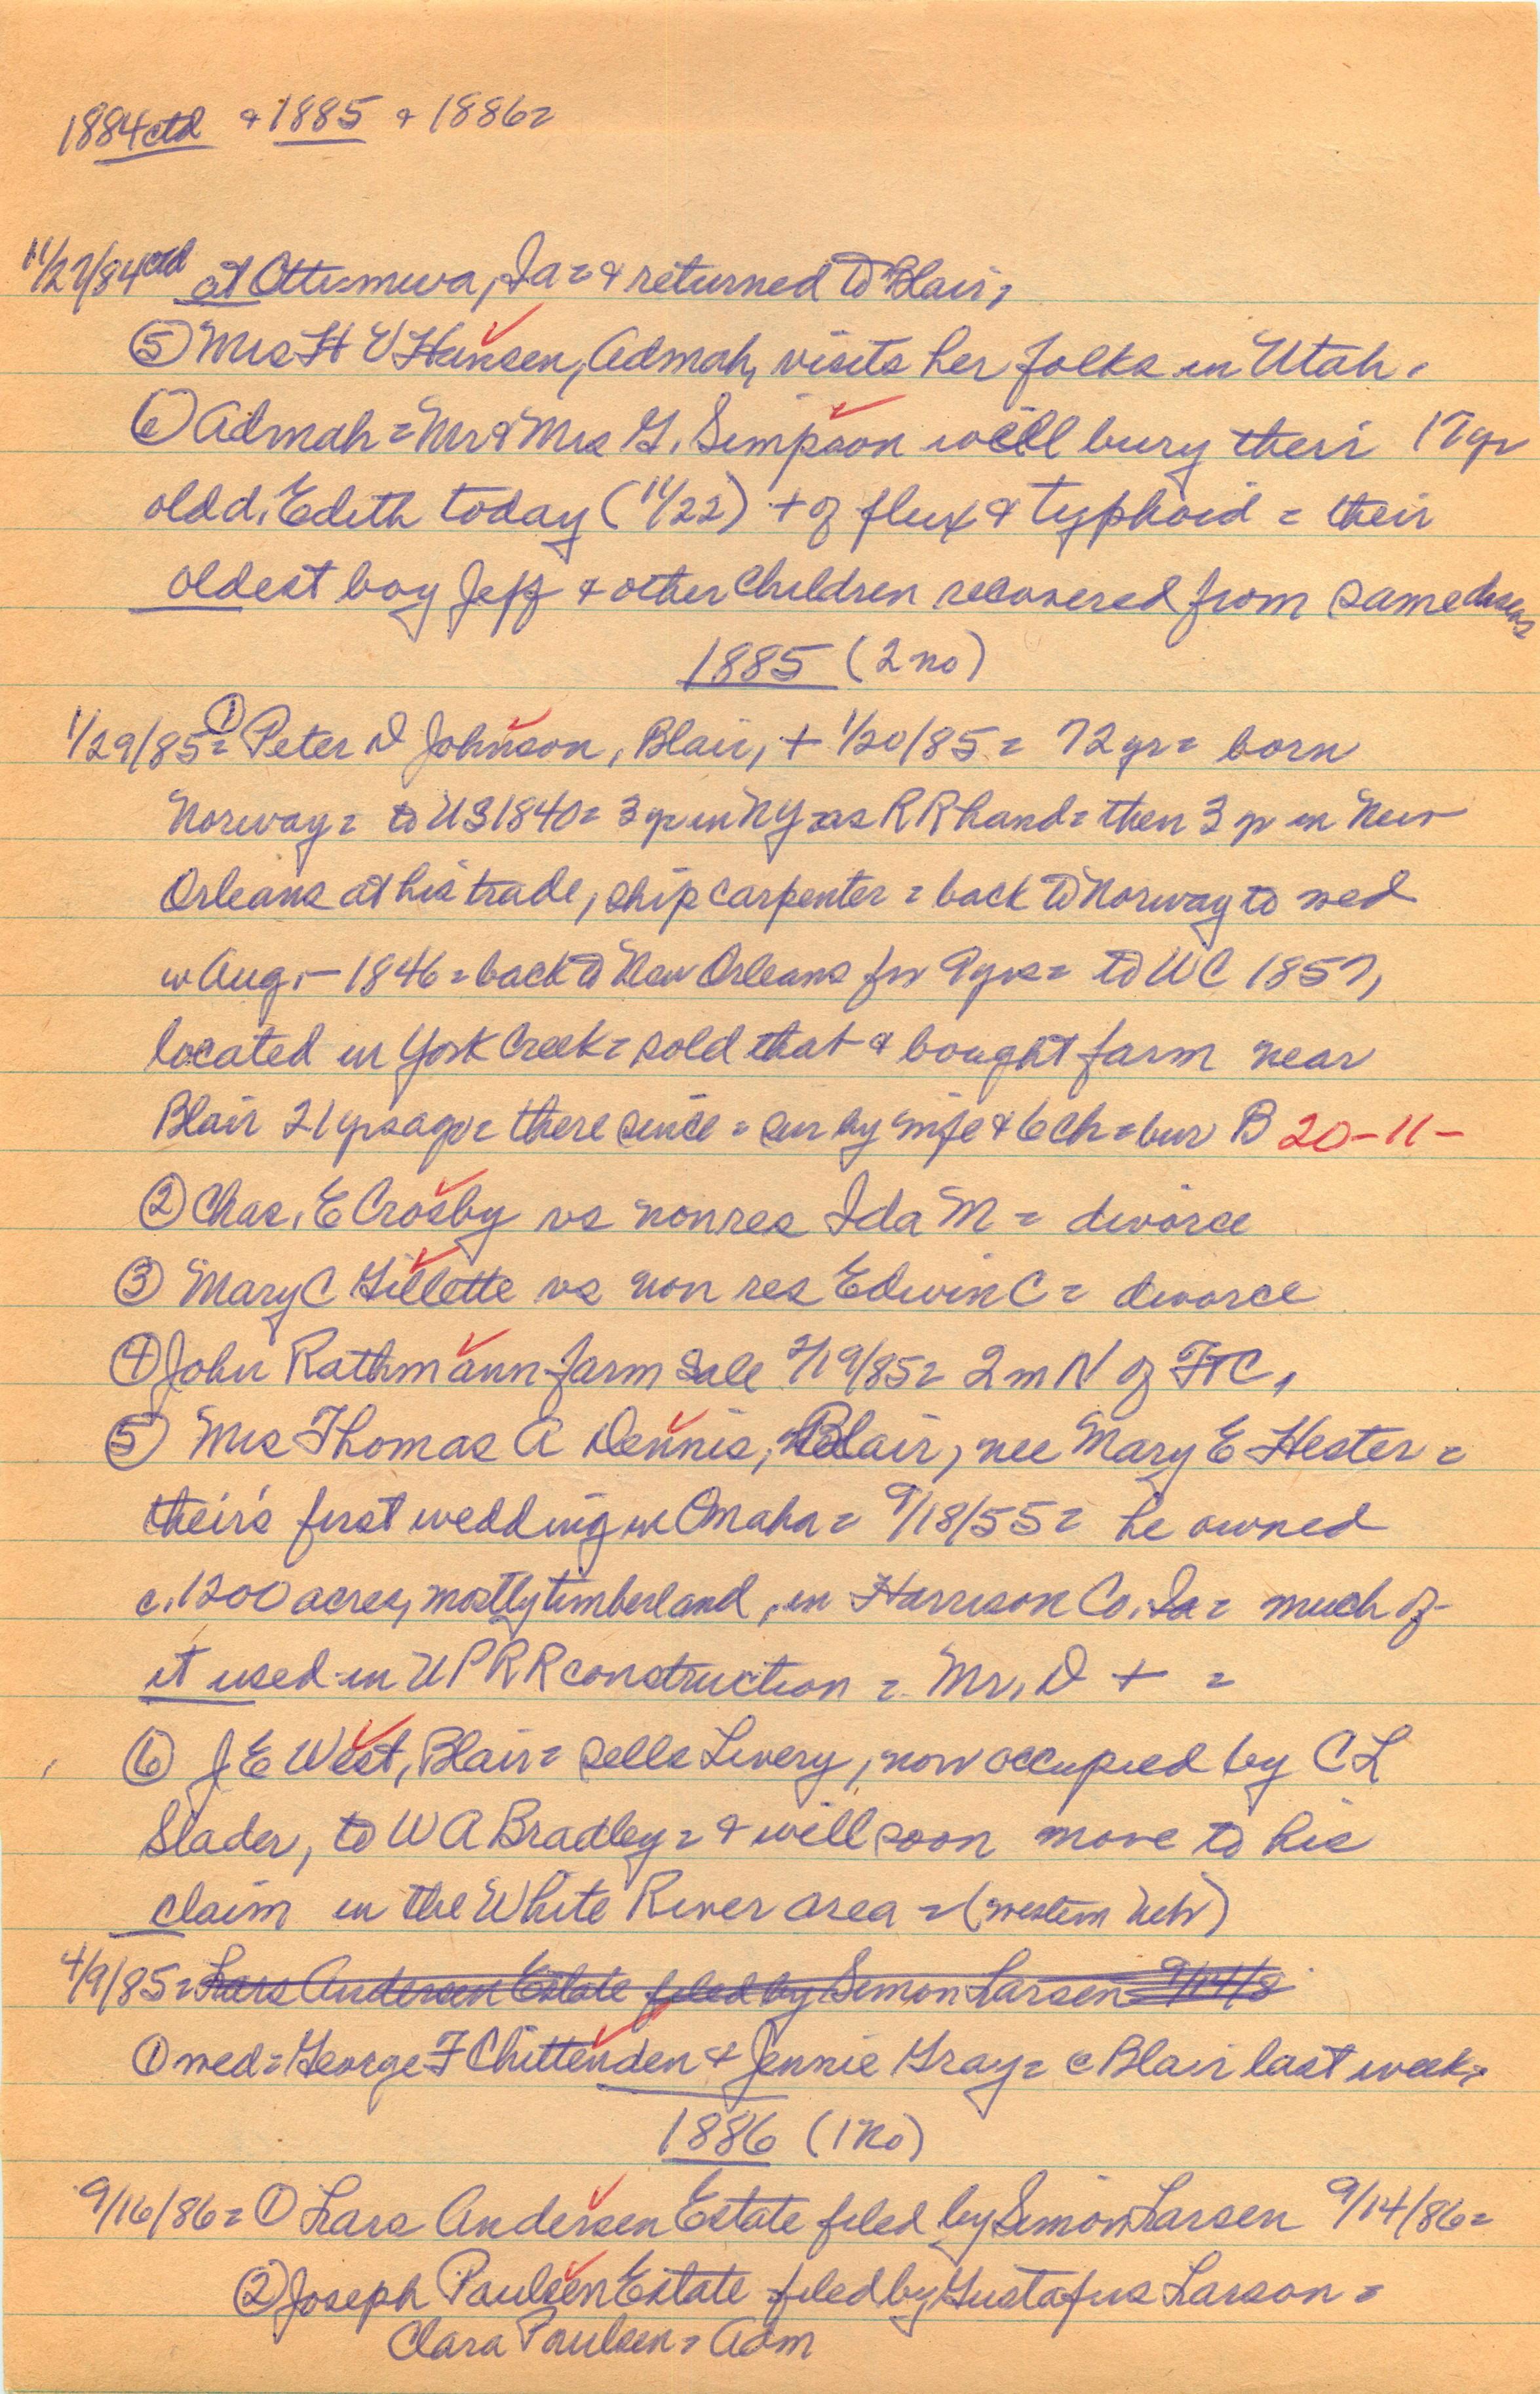 1884 ctd & 1885 & 1886=
11/27/84 ctd at Ottumwa, Ia = & returned to Blair,
⑤ Mrs H E Hansen, Admah, visits her folks in Utah.
⑥ Admah = Mr & Mrs G. Simpson will bury their 17 yr
old d. Edith today (11/22) + of flux & typhoid = their
oldest boy Jeff & other children recovered from same
1885 (2 no)
1/29/85 = ① Peter D Johnson, Blair, + 1/20/85 = 72 yrs = born
Norway = to US 1840 = 3 yr in NY as RR hand = then 3 yr in New
Orleans at his trade, ship carpenter = back to Norway to wed
w Aug. - 1846 = back to New Orleans for 9 yrs = to WC 1857,
located in York Creek = sold that & bought farm near
Blair 21 yrs ago = there since = sur by wife & 6 ch = bur B 20-11-
② Chas. E Crosby vs nonres Ida M = divorce
③ Mary C Gillette vs non res Edwin C = divorce
④ John Rathmann farm sale 2/19/85 = 2 m N of FtC,
⑤ Mrs Thomas A Dennis, Blair, nee Mary E Hester =
their's first wedding in Omaha = 9/18/55 = he owned
c. 1200 acres, mostly timberland, in Harrison Co. Ia = much of
it used in UPRR construction = Mr. D + =
⑥ J E West, Blair = sells Livery, now occupied by C L
Slader, to W A Bradley = & will soon move to his
claim in the White River area = (western Neb)
4/9/85 = Lars Andersen Estate filed by Simon Larsen 9/14/8
① wed = George F Chittenden & Jennie Gray = c Blair last week.
1886 (1 no)
9/16/86 = ① Lars Andersen Estate filed by Simon Larsen 9/14/86 =
② Joseph Paulsen Estate filed by Gustafus Larson =
Clara Paulsen = Adm